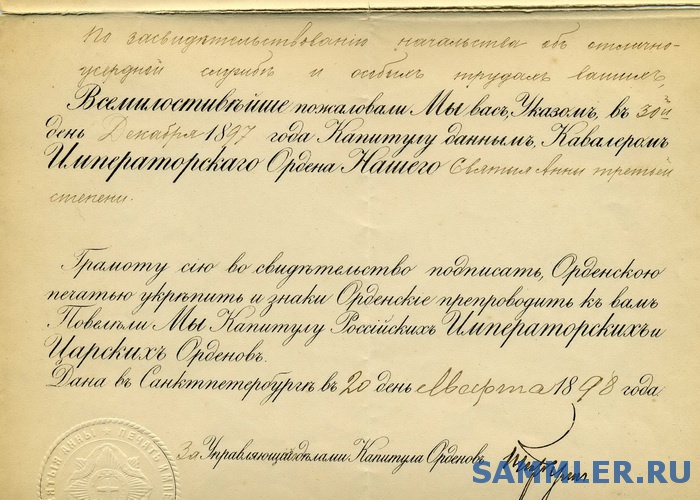 По засвидѣтельствованію начальства объ отлично-
усердной службѣ и особымъ трудамъ вашимъ,
Всемилостивѣйше пожаловали Мы васъ, Указомъ, въ 30й
день Декабря 1897 года Капитулу даннымъ, Кавалеромъ
Императорскаго Ордена Нашего Святыя Анны третьей
степени.
Грамоту сію во свидѣтельство подписать, Орденскою
печатью укрѣпить и знаки Орденскіе препроводить къ вамъ
Повелѣли Мы Капитулу Россійскихъ Императорскихъ и
Царскихъ Орденовъ.
Дана въ Санктпетербургѣ въ 20 день Марта 1898 года
За Управляющаго дѣлами Капитула Орденовъ
АННЫ ПЕЧАТЬ
SAMMLER.RU